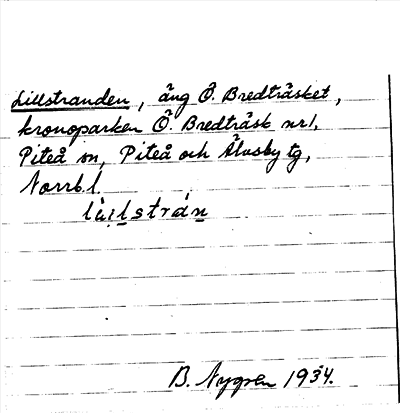 Lillstranden, äng Ö. Bredträsket,
kronoparken Ö. Bredträsk nr 1,
Piteå sn, Piteå och Älvsby tg,
Norrb. l.
lìl̩strán
B. Nygren 1934.